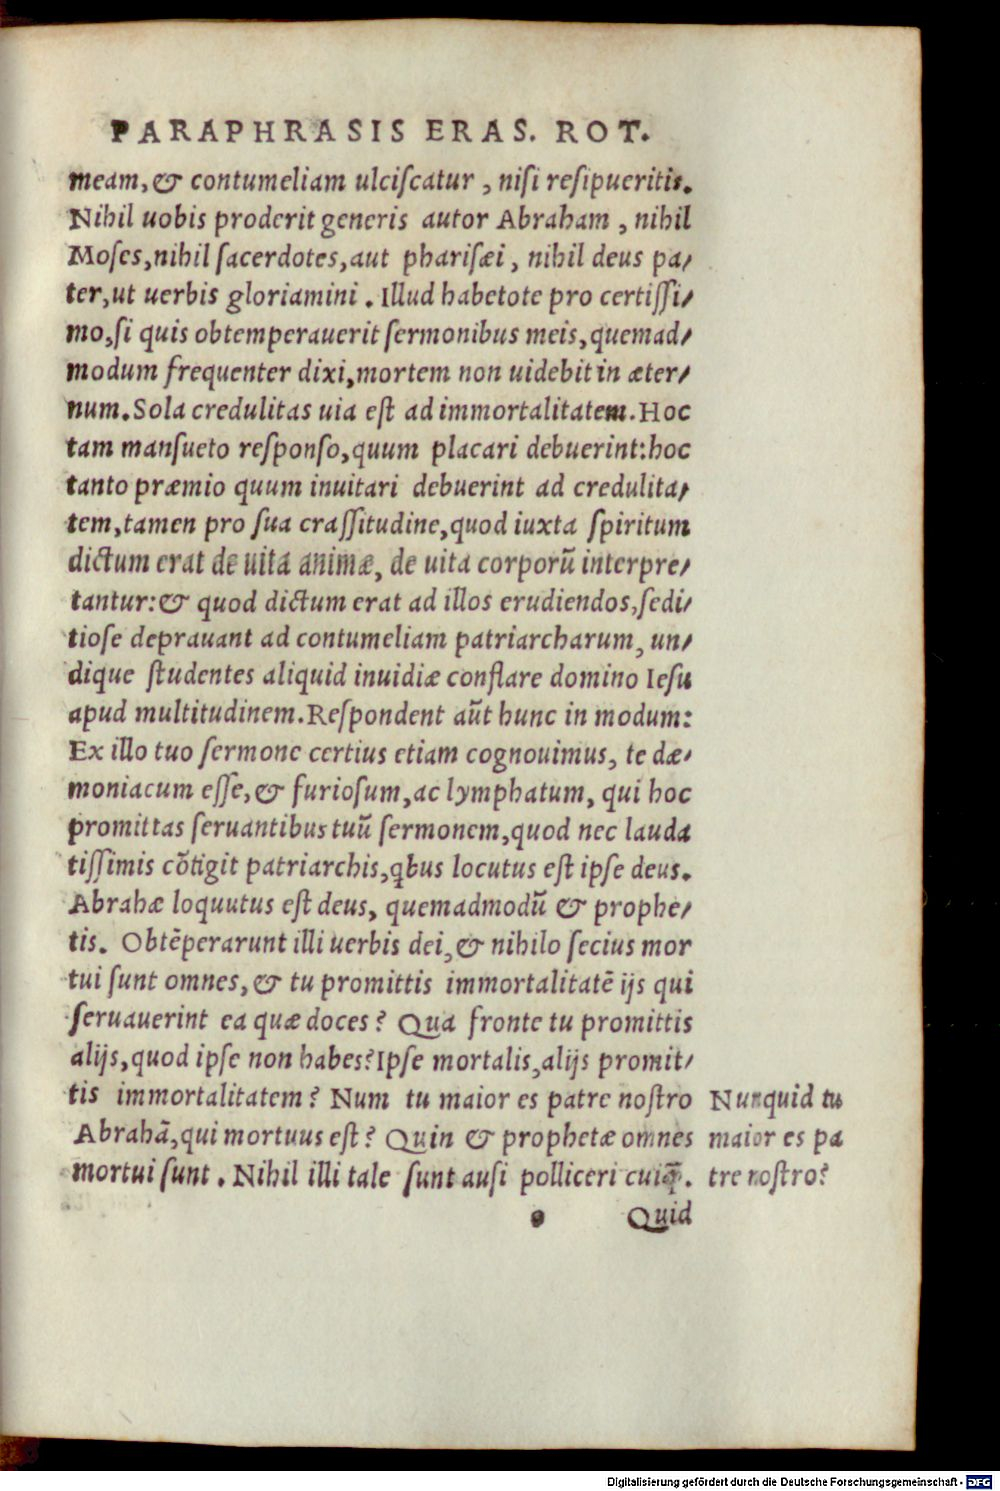 PARAPHRASIS ERAS. ROT.
meam, & contumeliam ulciſcatur, niſi reſipueritis.
Nihil uobis proderit generis autor Abraham, nihil
Moſes, nihil ſacerdotes, aut phariſæi, nihil deus pa/
ter, ut uerbis gloriamini. Illud habetote pro certiſſi/
mo, ſi quis obtemperauerit ſermonibus meis, quemad/
modum frequenter dixi, mortem non uidebit in æter/
num. Sola credulitas uia eſt ad immortalitatem. Hoc
tam manſueto reſponſo, quum placari debuerint: hoc
tanto præmio quum inuitari debuerint ad credulita/
tem, tamen pro ſua craſſitudine, quod iuxta ſpiritum
dictum erat de uita animæ, de uita corporū interpre/
tantur: & quod dictum erat ad illos erudiendos, ſedi/
tioſe deprauant ad contumeliam patriarcharum, un/
dique ſtudentes aliquid inuidiæ conflare domino Ieſu
apud multitudinem. Reſpondent aūt hunc in modum:
Ex illo tuo ſermone certius etiam cognouimus, te dæ/
moniacum eſſe, & furioſum, ac lymphatum, qui hoc
promittas ſeruantibus tuū ſermonem, quod nec lauda
tiſſimis cōtigit patriarchis, qbus locutus eſt ipſe deus.
Abrahæ loquutus eſt deus, quemadmodū & prophe/
tis. Obtēperarunt illi uerbis dei, & nihilo ſecius mor
tui ſunt omnes, & tu promittis immortalitatē ijs qui
ſeruauerint ea quæ doces? Qua fronte tu promittis
alijs, quod ipſe non habes? Ipſe mortalis, alijs promit/
tis immortalitatem? Num tu maior es patre noſtro
Abrahā, qui mortuus eſt? Quin & prophetæ omnes
mortui ſunt. Nihil illi tale ſunt auſi polliceri cuiq̄.
Nunquid tu
maior es pa
tre noſtro?
Quid
Digitalisierung gefördert durch die Deutsche Forschungsgemeinschaft - DFG